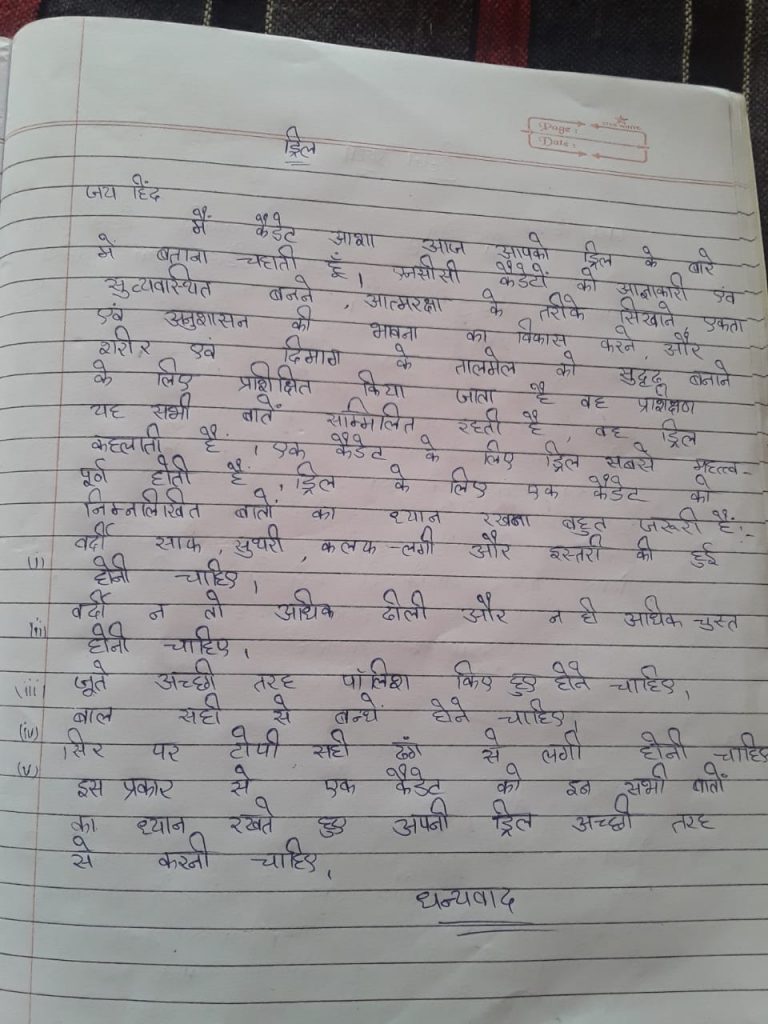 Page:
Date:
ड्रिल
जय हिंद
मैं कैडेट आशा आज आपको ड्रिल के बारे
में बताना चहाती हूँ। एनसीसी कैडेटों को आज्ञाकारी एवं
सुव्यवस्थित बनने, आत्मरक्षा के तरीके सिखाने, एकता
एवं अनुशासन की भावना का विकास करने, और
शरीर एवं दिमाग के तालमेल को सुदृढ़ बनाने
के लिए प्रशिक्षित किया जाता है वह प्रशिक्षण
यह सभी बातें सम्मिलित रहती है, वह ड्रिल
कहलाती है। एक कैडेट के लिए ड्रिल सबसे महत्त्व-
पूर्व होती है। ड्रिल के लिए एक कैडेट को
निम्नलिखित बातों का ध्यान रखना बहुत जरूरी है:-
(i) वर्दी साफ, सुथरी, कलफ-लगी और इस्तरी की हुई
होनी चाहिए।
(ii) वर्दी न तो अधिक ढीली और न ही अधिक चुस्त
होनी चाहिए।
(iii) जूते अच्छी तरह पॉलिश किए हुए होने चाहिए।
(iv) बाल सही से बन्धे होने चाहिए।
(v) सिर पर टोपी सही ढंग से लगी होनी चाहिए
इस प्रकार से एक कैडेट को इन सभी बातों
का ध्यान रखते हुए अपनी ड्रिल अच्छी तरह
से करनी चाहिए।
धन्यवाद